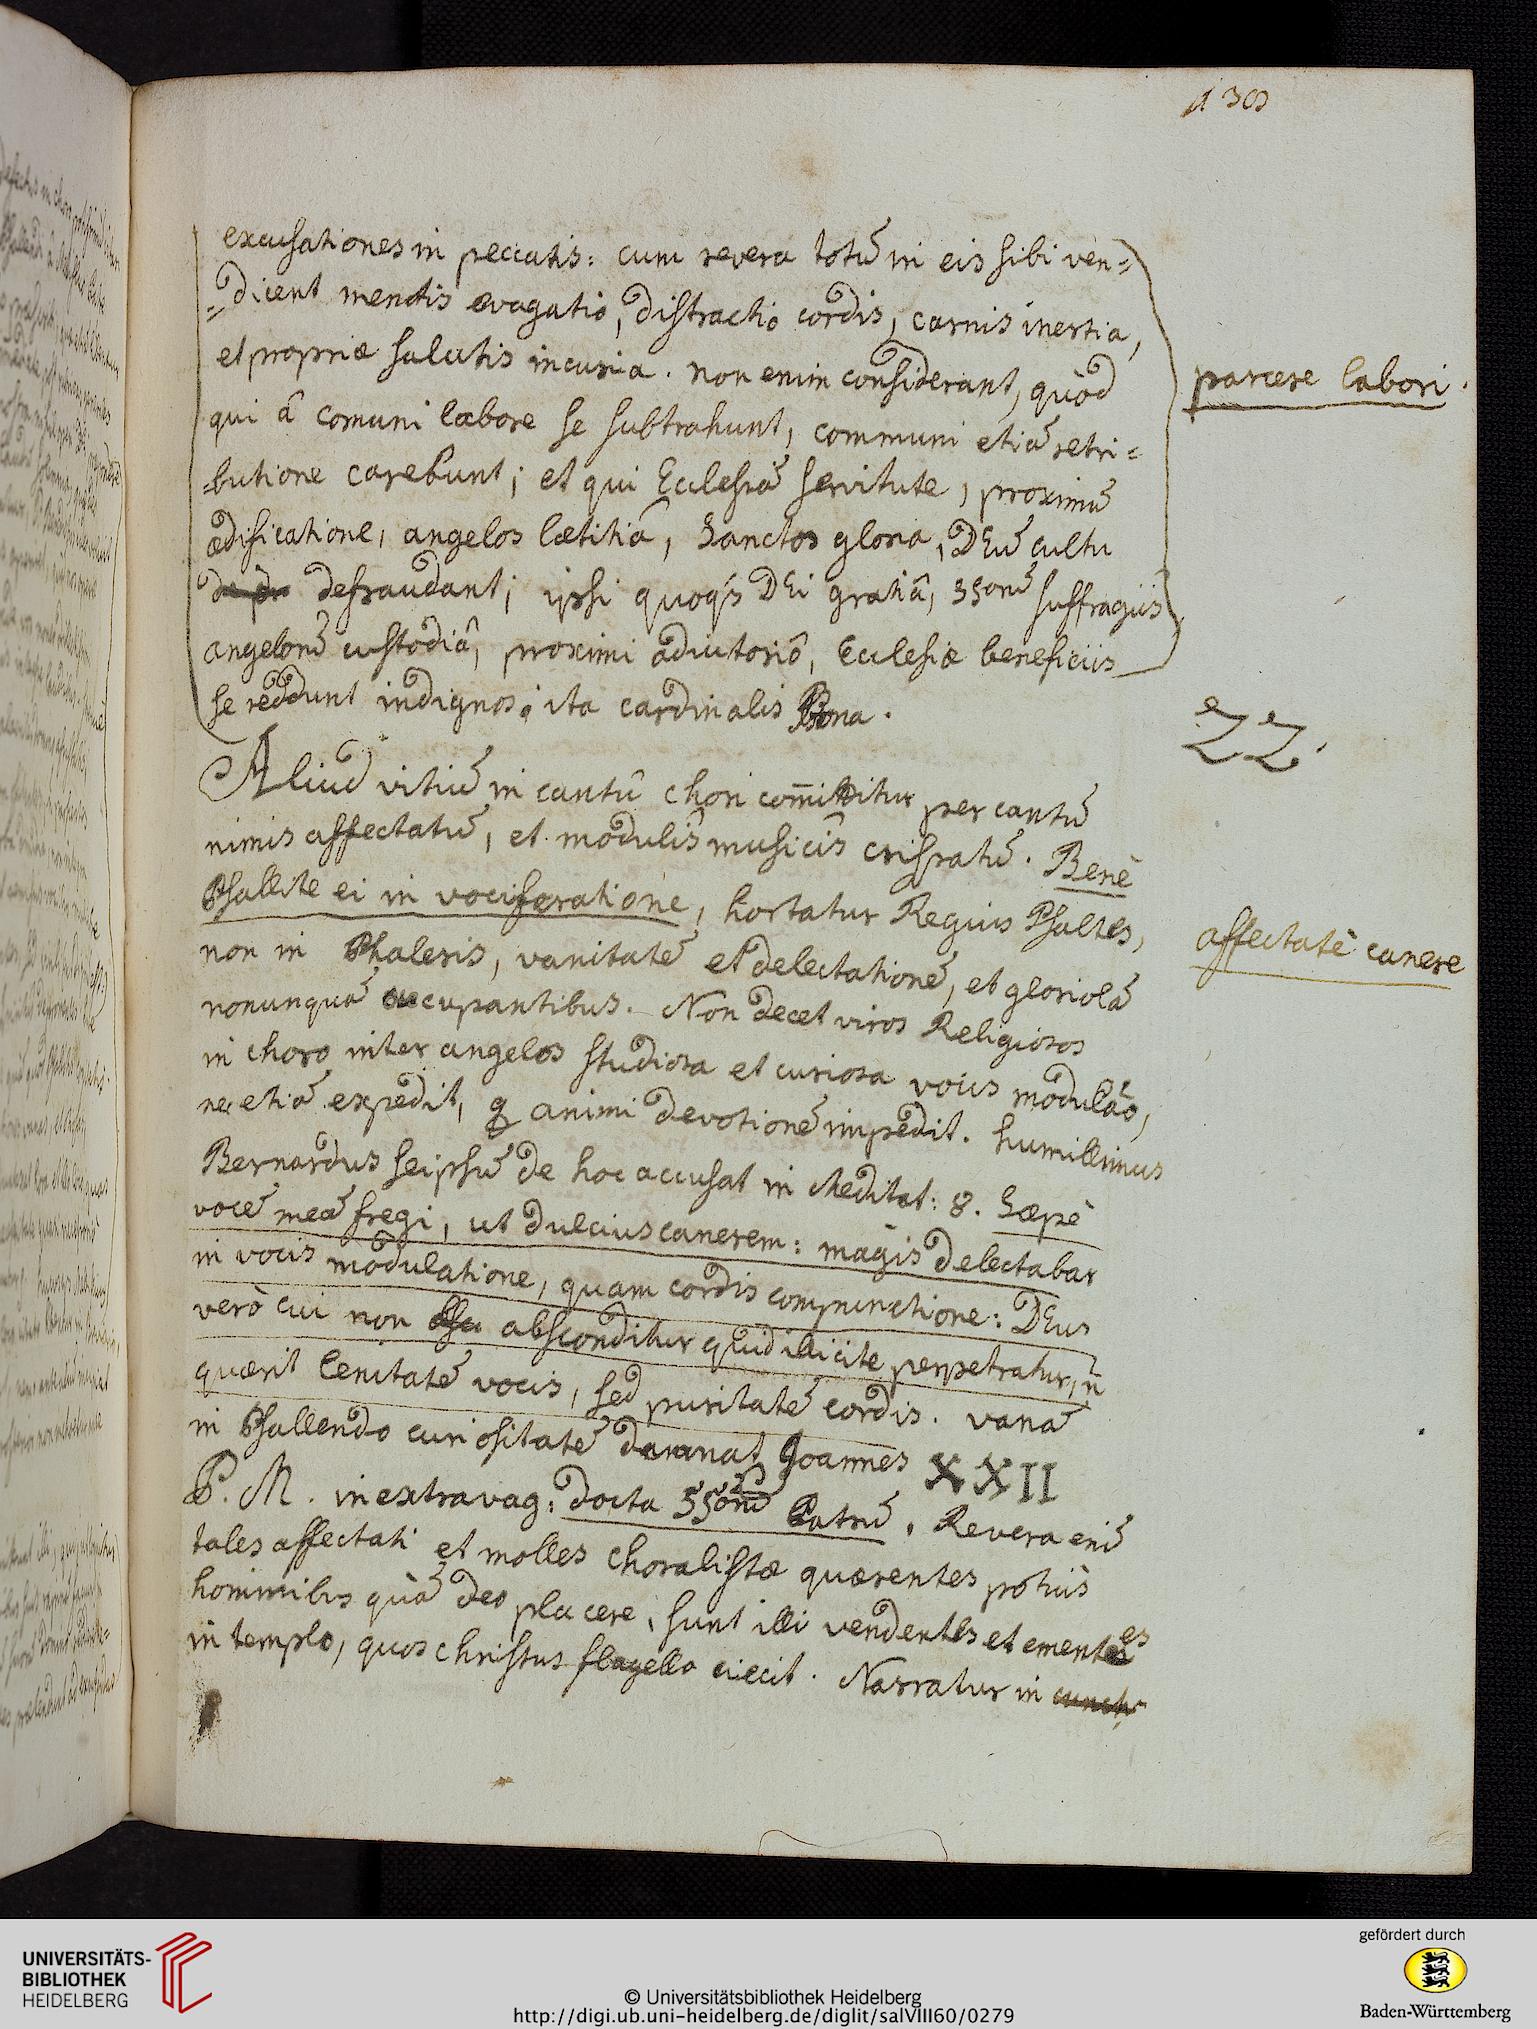 130
excusationes in peccatis: cum revera totũ in eis sibi ven=
=dicent mentis evagatio, distractio cordis, carnis inertia,
et propriæ salutis incuria. non enim considerant, quòd
parcere labori.
qui â comuni labore se subtrahunt, communi etiã retri=
=butione carebunt; et qui Ecclesiã servitute, proximũ
ædificatione, angelos lætitiâ, Sanctos gloria, DEũ cultu
defraudant; ipsi quoq́s DEi gratiâ, SSorũ suffragiis
angelorũ custodiâ, proximi adiutoriô, Ecclesiæ beneficiis
se reddunt indignos; ita cardinalis Bona.
22.
Aliud vitiũ in cantû chori com̄ittitur per cantũ
nimis affectatũ, et modulis musicis crispatũ. Benè
Psallite ei in vociferatione, hortatur Regius Psaltes,
affectatè canere
non in Phaleris, vanitatẽ et delectationẽ, et gloriolã
nonunquã aucupantibus. Non decet viros Religiosos
in choro inter angelos studiosa et curiosa vocis modulaõ,
nec etiã expedit, q animi devotionẽ impedit. humillimus
Bernardus seipsũ de hoc accusat in Meditat: 8. Sæpè
vocẽ meã fregi, ut dulcius canerem: magis delectabar
in vocis modulatione, quam cordis compunctione: DEus
verò cui non absconditur quid illicite perpetratur, ñ
quærit lenitatẽ vocis, sed puritatẽ cordis. vanã
in Psallendo curiositatẽ damnat Joannes XXII
P. M. in extravag: docta SSorũ Patrũ. Revera enĩ
tales affectati et molles choralistæ quærentes potiùs
hominibus quã deo placere, sunt illi vendentes et ementes
in templo, quos christus flagello eiecit. Narratur in
UNIVERSITÄTS-
BIBLIOTHEK
HEIDELBERG
© Universitätsbibliothek Heidelberg
http://digi.ub.uni-heidelberg.de/diglit/salVIII60/0279
gefördert durch
Baden-Württemberg